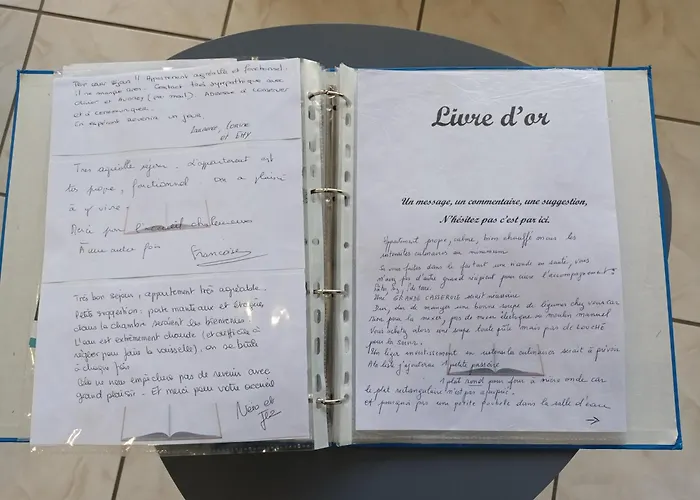 Très bon séjour !! Appartement agréable et fonctionnel.
il ne manque rien. Contact très sympathique avec
et (par mail). Adresse à conserver
et à communiquer.
En espérant revenir un jour.
et
Très agréable séjour. L'appartement est
très propre, fonctionnel. On a plaisir
à y vivre.
Merci pour l'accueil chaleureux
À une autre fois Françoise
Très bon séjour, appartement très agréable.
Petite suggestion : porte manteaux et étagère
dans la chambre seraient les bienvenus.
L'eau est extrêmement chaude (et difficile à
régler pour faire la vaisselle), on se brûle
à chaque fois
Cela ne nous empêchera pas de revenir avec
grand plaisir. Et merci pour votre accueil
Livre d'or
Un message, un commentaire, une suggestion,
N'hésitez pas c'est par ici.
Appartement propre, calme, bien chauffé mais les
ustensiles culinaires au minimum
Si vous faites dans le faitout une viande en sauce, vous
n'avez pas d'autre grand récipient pour cuire l'accompagnement :
Pâtes, riz, P. de terre.
Une GRANDE CASSEROLE serait nécessaire
Bien, de manger une bonne soupe de légumes chez vous car
rien pour la mixer, pas de mixer électrique ou moulin manuel
Vous achetez alors une soupe toute prête mais pas de louche
pour la servir.
Un léger investissement en ustensiles culinaires serait à prévoir
A la liste j'ajouterai 1 petite passoire
1 plat rond pour four à micro onde car
le plat rectangulaire n'est pas approprié.
Et pourquoi pas une petite dans la salle d'eau
→